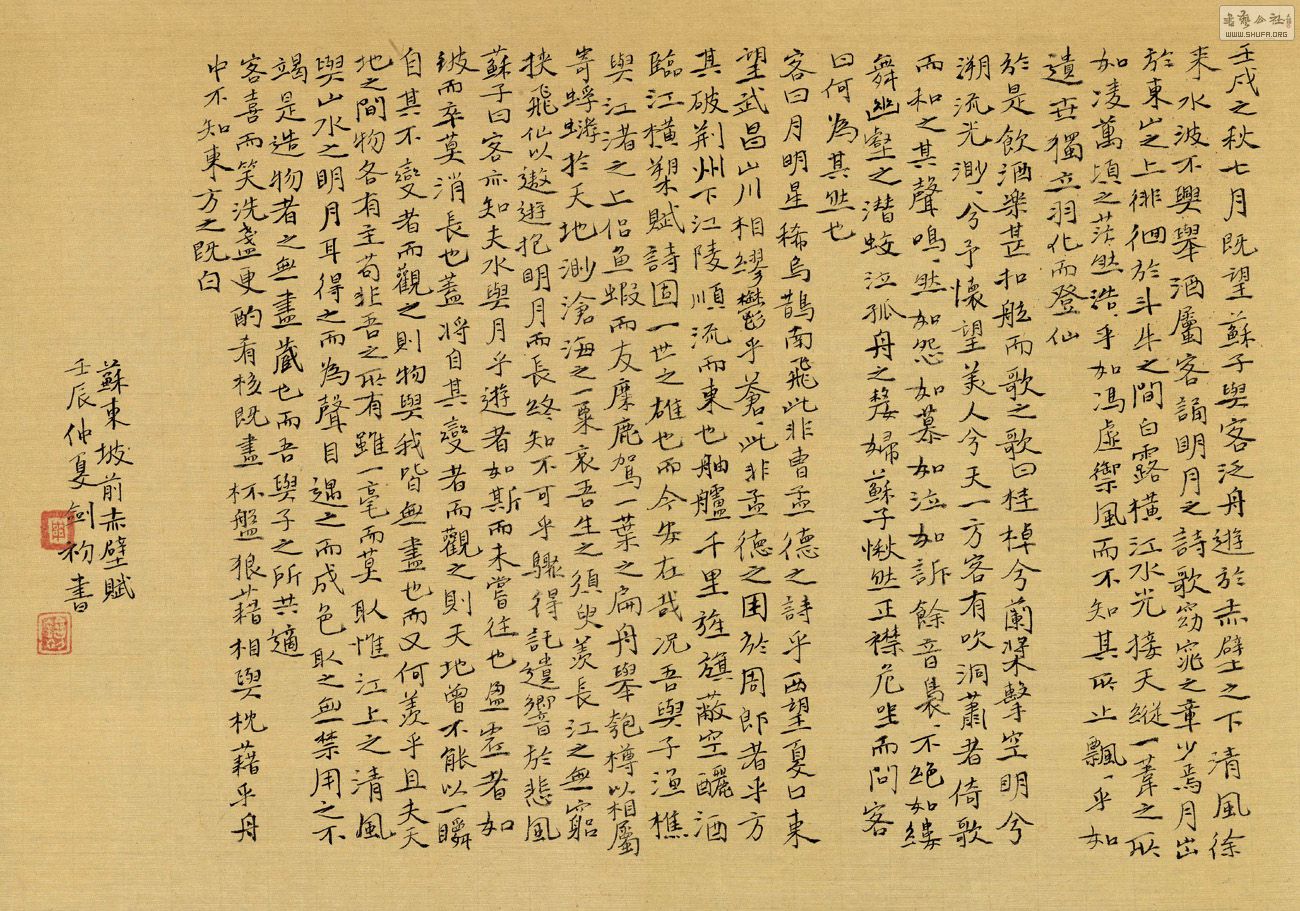 壬戌之秋七月既望蘇子與客泛舟遊於赤壁之下清風徐
來水波不興舉酒屬客誦明月之詩歌窈窕之章少焉月出
於東山之上徘徊於斗牛之間白露橫江水光接天縱一葦之所
如凌萬頃之茫然浩乎如馮虛御風而不知其所止飄〻乎如
遺世獨立羽化而登仙
於是飲酒樂甚扣舷而歌之歌曰桂棹兮蘭槳擊空明兮
溯流光渺〻兮予懷望美人兮天一方客有吹洞蕭者倚歌
而和之其聲嗚〻然如怨如慕如泣如訴餘音裊〻不絕如縷
舞幽壑之潛蛟泣孤舟之嫠婦蘇子愀然正襟危坐而問客
曰何為其然也
客曰月明星稀烏鵲南飛此非曹孟德之詩乎西望夏口東
望武昌山川相繆鬱乎蒼〻此非孟德之困於周郎者乎方
其破荊州下江陵順流而東也舳艫千里旌旗蔽空釃酒
臨江橫槊賦詩固一世之雄也而今安在哉况吾與子漁樵
與江渚之上侶魚蝦而友麋鹿駕一葉之扁舟舉匏樽以相屬
寄蜉蝣於天地渺滄海之一粟哀吾生之須臾羨長江之無窮
挾飛仙以遨遊抱明月而長終知不可乎驟得託遺響於悲風
蘇子曰客亦知夫水與月乎遊者如斯而未嘗往也盈虛者如
彼而卒莫消長也蓋將自其變者而觀之則天地曾不能以一瞬
自其不變者而觀之則物與我皆無盡也而又何羨乎且夫天
地之間物各有主苟非吾之所有雖一毫而莫取惟江上之清風
與山水之明月耳得之而為聲目遇之而成色取之無禁用之不
竭是造物者之無盡藏也而吾與子之所共適
客喜而笑洗盞更酌肴核既盡杯盤狼藉相與枕藉乎舟
中不知東方之既白
蘇東坡前赤壁賦
壬辰仲夏劍礿書
書藝公社
WWW.SHUFA.ORG